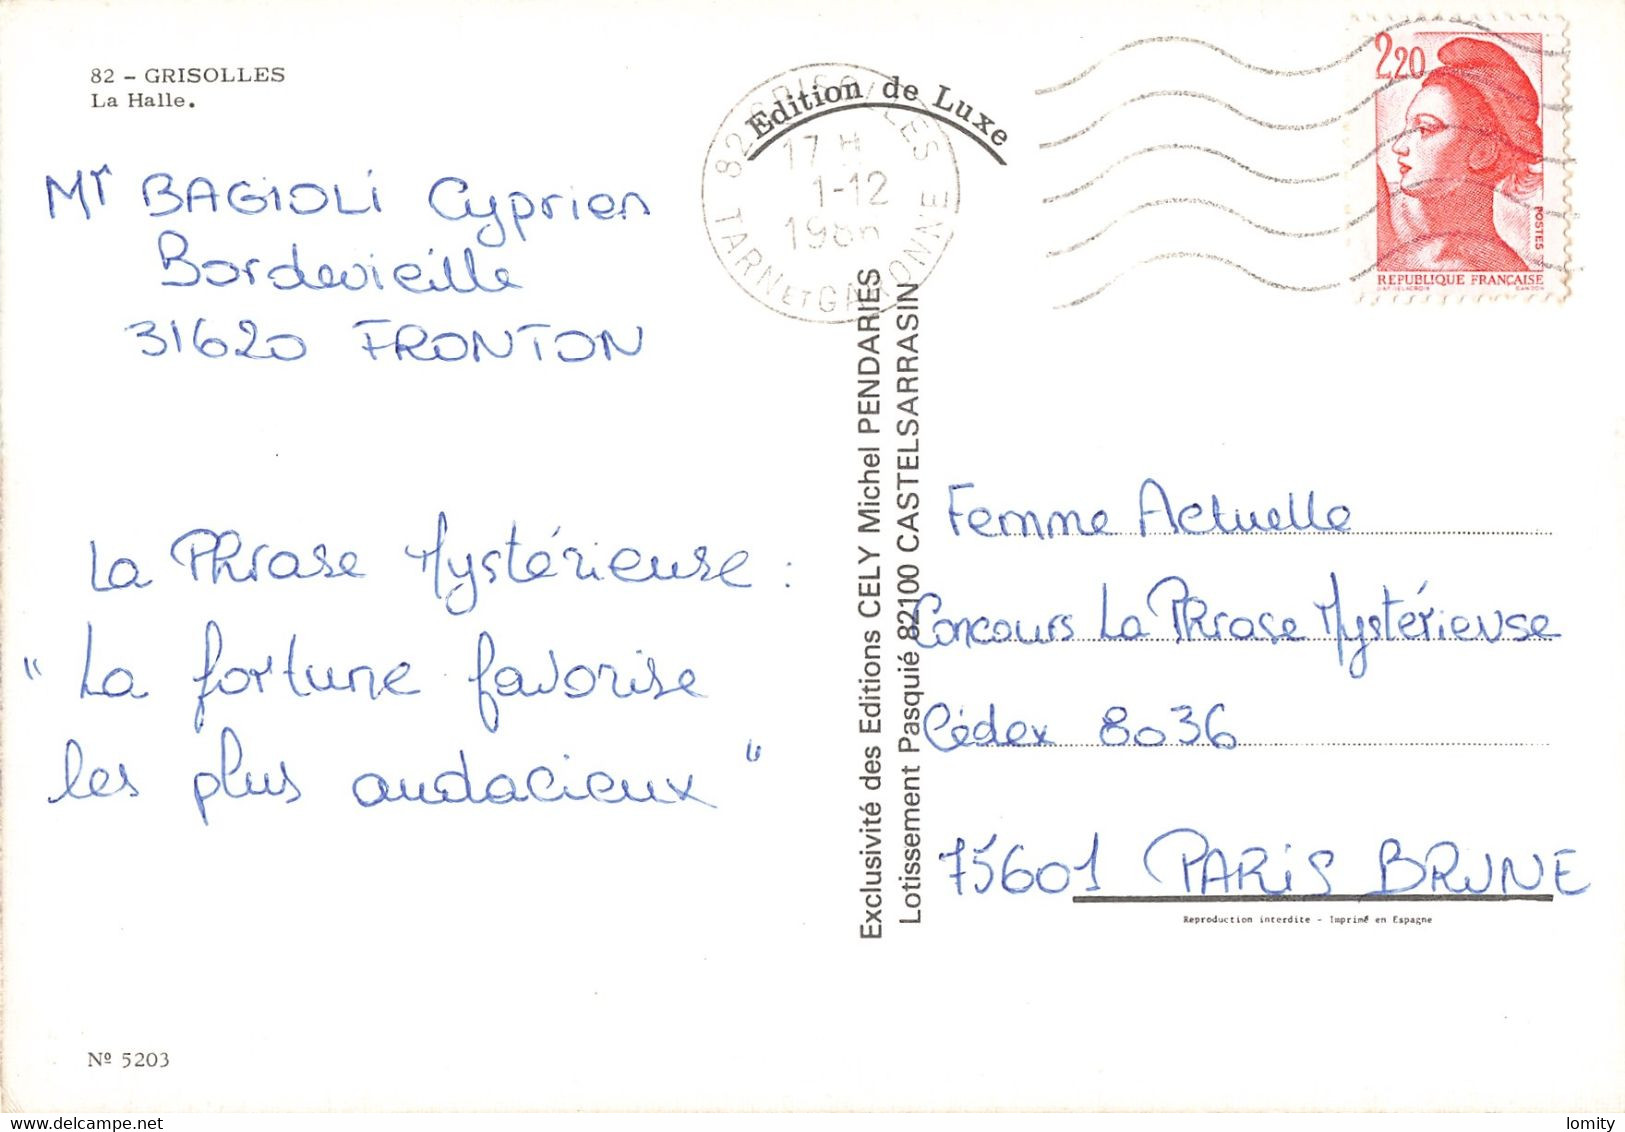 82 - GRISOLLES
La Halle.
Mr BAGIOLI Cyprien
Bordevieille
31620 FRONTON
La Phrase Mystérieuse :
" La fortune favorise
les plus audacieux "
Nº 5203
Edition de Luxe
82 GRISOLLES
17 H
1-12
1986
TARN ET GARONNE
Exclusivité des Editions CELY Michel PENDARIES
Lotissement Pasquié 82100 CASTELSARRASIN
2,20
POSTES
REPUBLIQUE FRANÇAISE
Femme Actuelle
Concours La Phrase Mystérieuse
Cédex 8036
75601 PARIS BRUNE
Reproduction interdite - Imprimé en Espagne
lomity